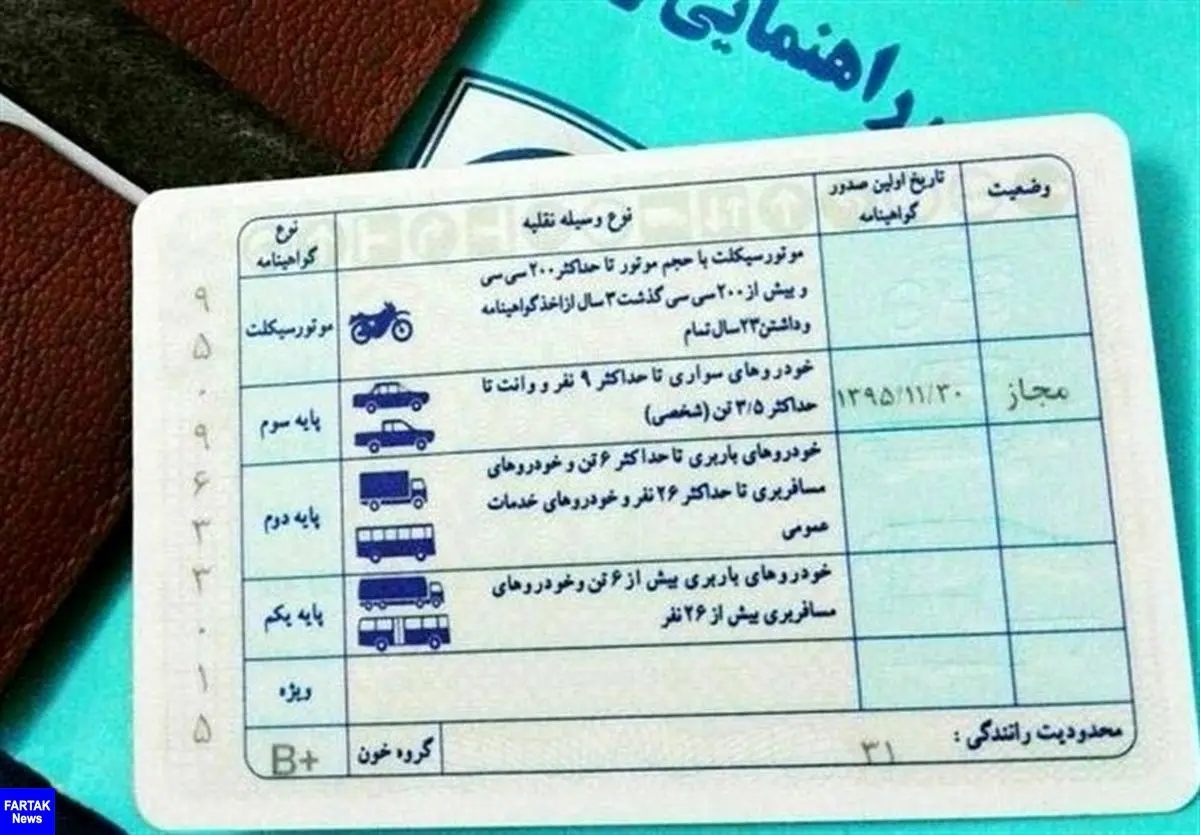 راهنمایی
وضعیت
تاریخ اولین صدور
گواهینامه
نوع وسیله نقلیه
نوع
گواهینامه
موتورسیکلت با حجم موتور تا حداکثر ۲۰۰ سی سی
و بیش از ۲۰۰ سی سی گذشت ۳ سال از اخذ گواهینامه
و داشتن ۲۳ سال تمام
موتورسیکلت
مجاز
۱۳۹۵/۱۱/۳۰
خودروهای سواری تا حداکثر ۹ نفر و وانت تا
حداکثر ۳/۵ تن (شخصی)
پایه سوم
خودروهای باربری تا حداکثر ۶ تن و خودروهای
مسافربری تا حداکثر ۲۶ نفر و خودروهای خدمات
عمومی
پایه دوم
خودروهای باربری بیش از ۶ تن و خودروهای
مسافربری بیش از ۲۶ نفر
پایه یکم
ویژه
محدودیت رانندگی : ۳۱
گروه خون
B+
۹
۵
۰
۹
۶
۳
۳
۰
۱
۵
FARTAK
News